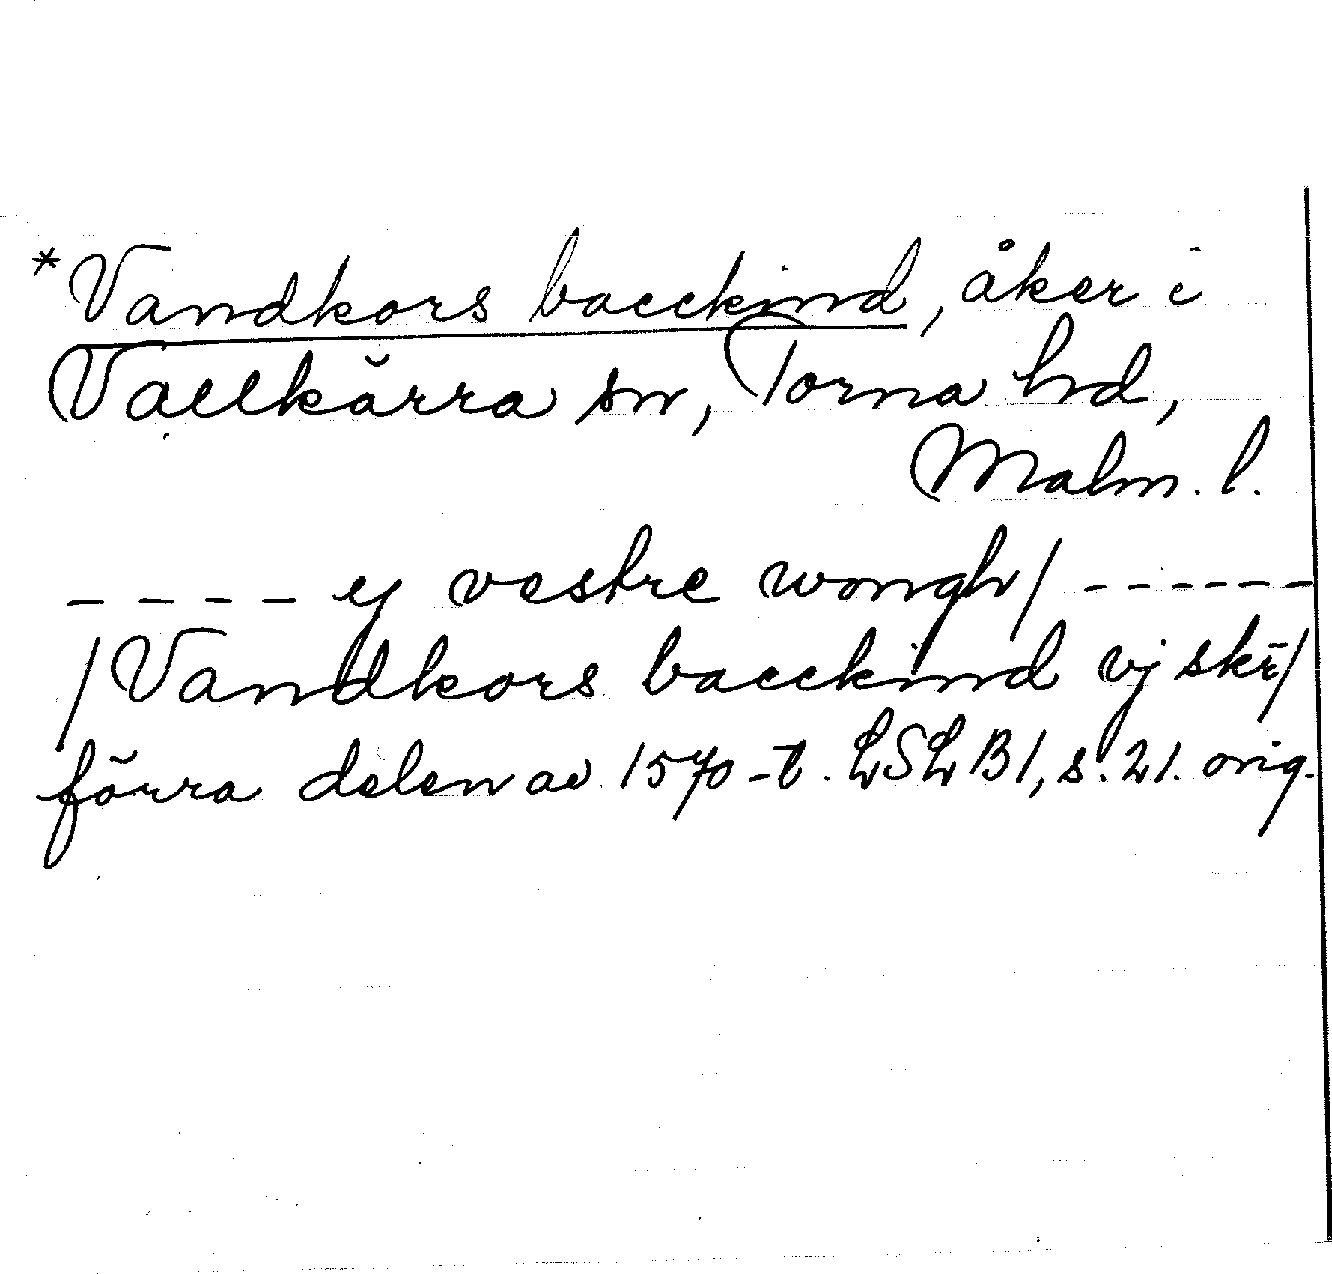 *Vandkors bacekind, åker i
Vallkärra sn, Torna hd,
Malm. l.
---- ej vestre wongh/ ------
/Vandkors bacekind vj skr̄/
förra delen av 1570-t. LSLB1, s. 21. orig.